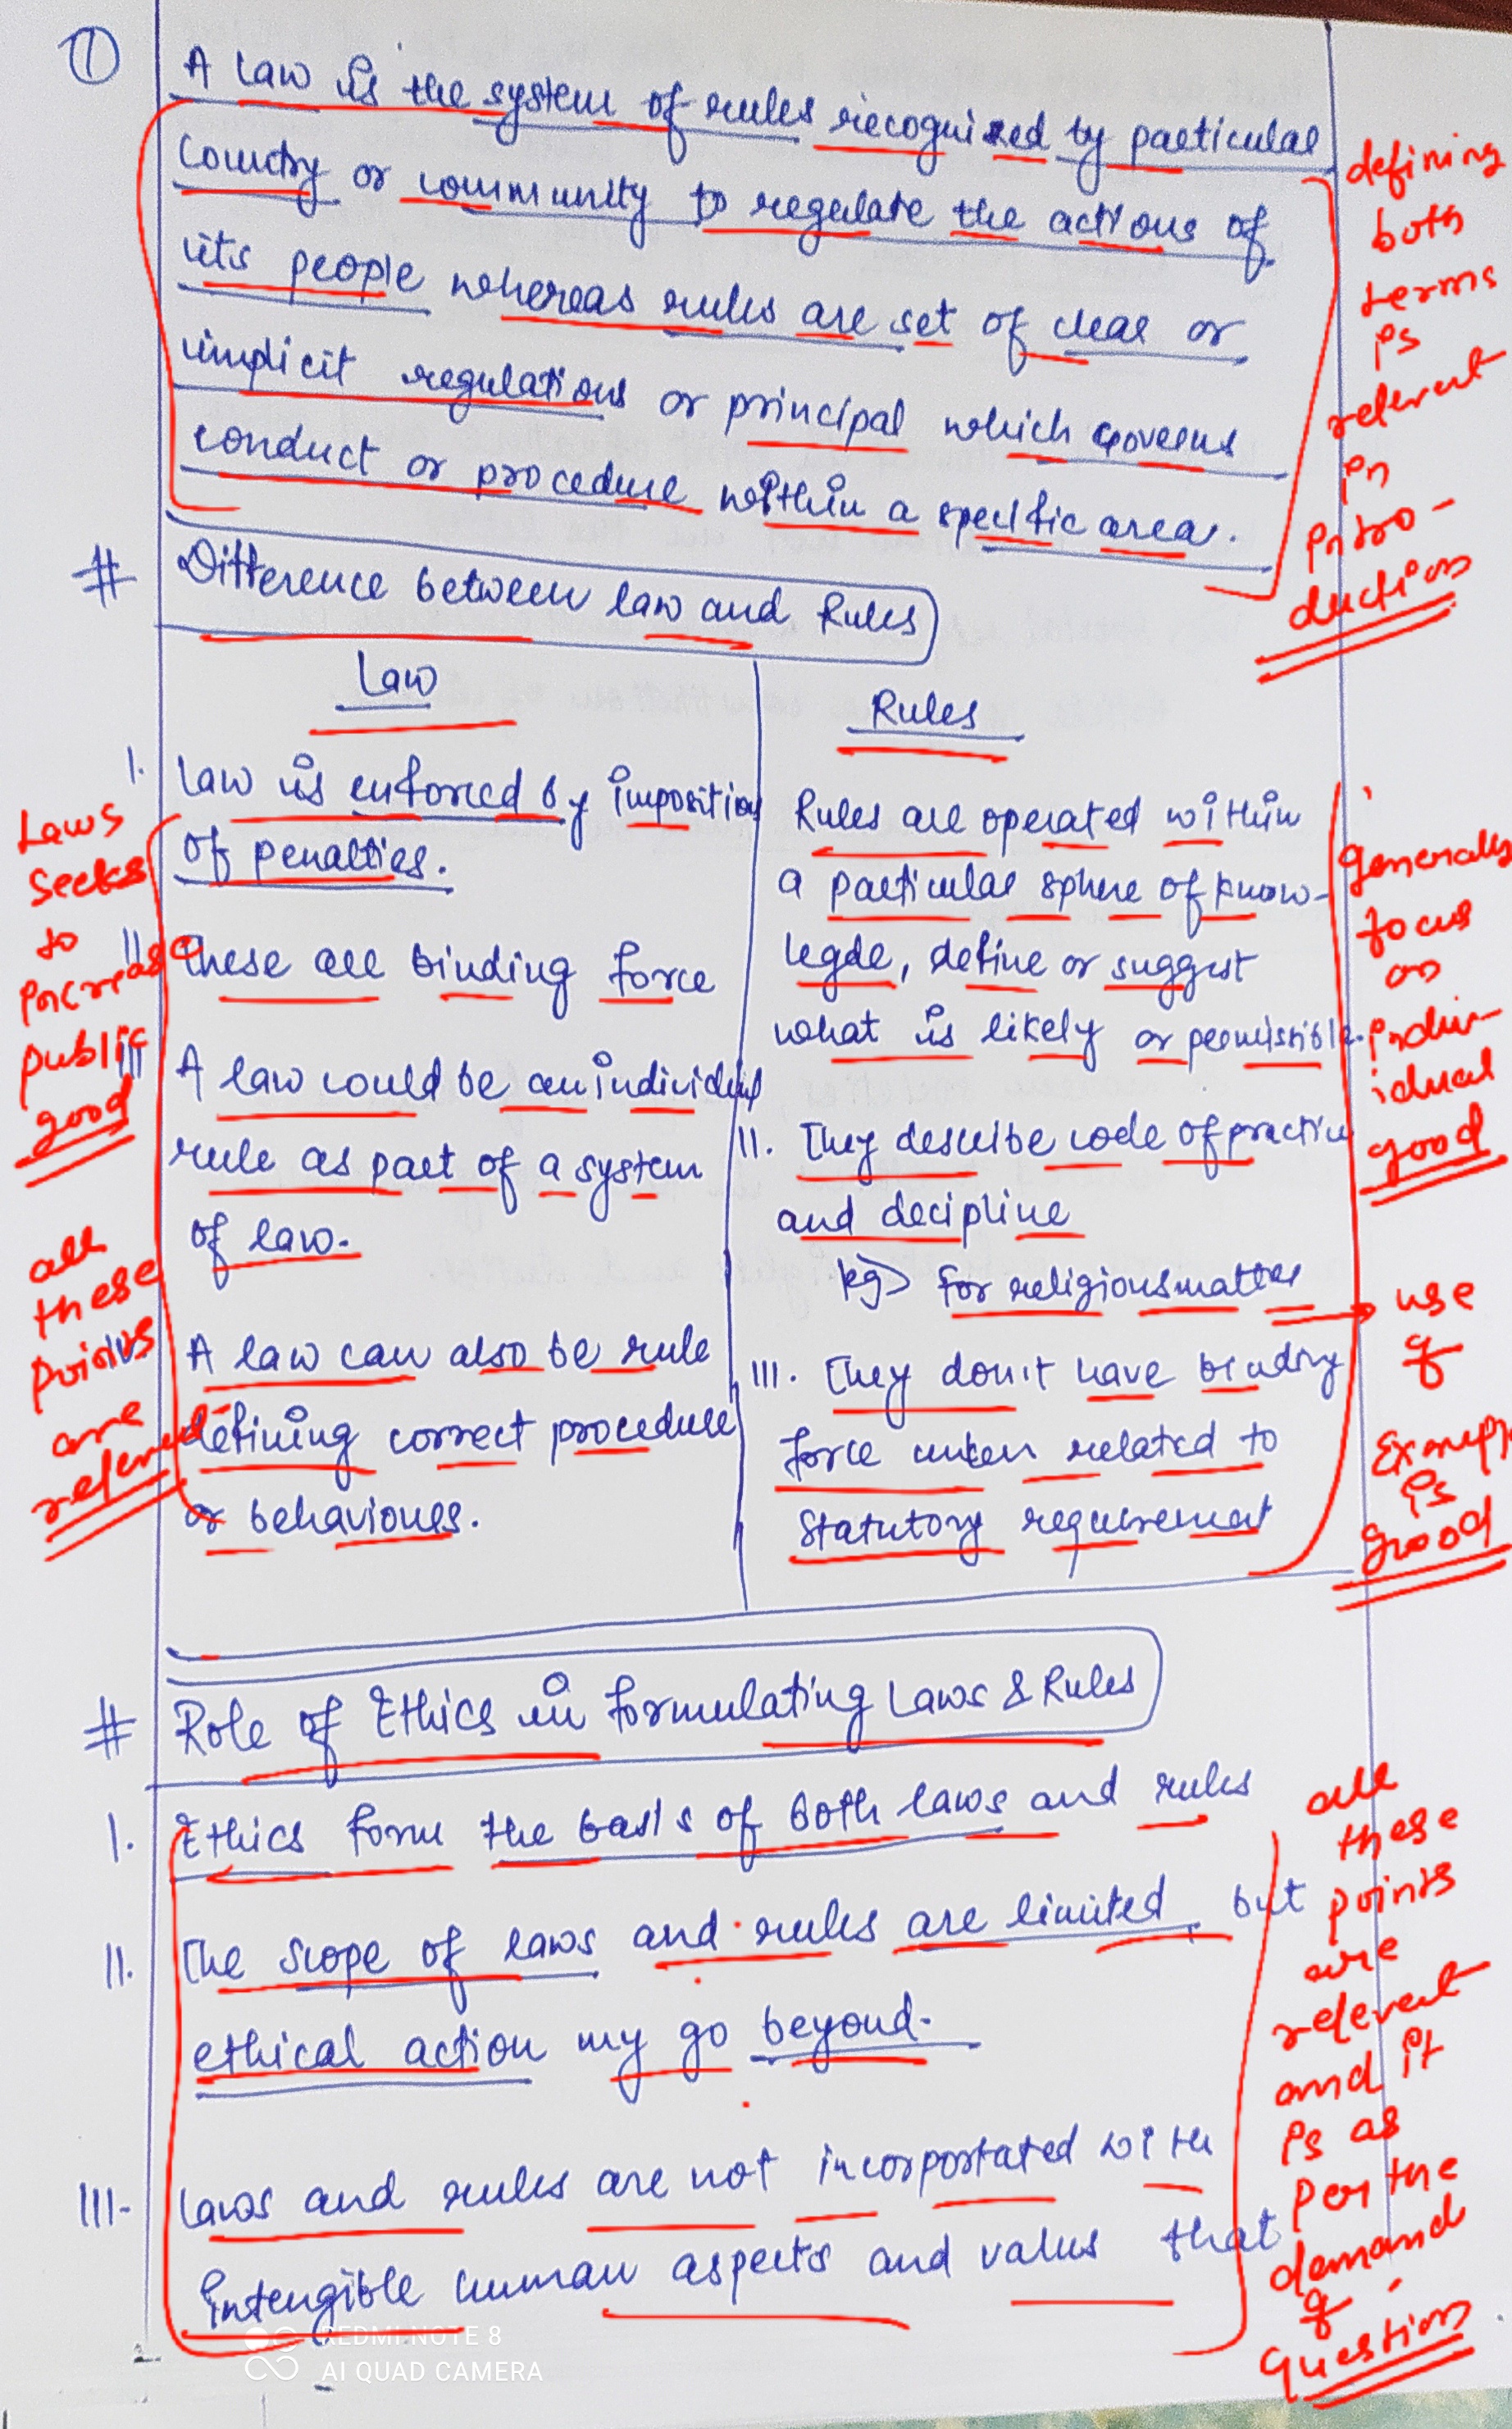 ①
A law is the system of rules recognized by particular
Country or community to regulate the actions of
its people whereas rules are set of clear or
implicit regulations or principal which governs
conduct or procedure within a specific area.
defining
both
terms
is
relevent
in
intro-
duction
# Difference between law and Rules
Law
I. Law is enforced by imposition
of penalties.
II These are binding force
III A law could be an individual
rule as part of a system
of law.
IV. A law can also be rule
defining correct procedure
or behaviours.
Laws
seeks
to
increase
public
good
all
these
points
are
relevent
Rules
Rules are operated within
a particular sphere of know-
legde, define or suggest
what is likely or permissible.
II. They describe code of practice
and decipline
eg> for religious matter
III. They don't have binding
force unless related to
statutory requirement
generally
focus
on
indiv-
idual
good
use
of
Example
is
good
# Role of Ethics in formulating Laws & Rules
I. Ethics form the basis of both laws and rules
II. The scope of laws and rules are limited, but
ethical action my go beyond.
III- Laws and rules are not incorportated with
intengible human aspects and values that
all
these
points
are
relevent
and it
is as
per the
demand
of
question
REDMI NOTE 8
AI QUAD CAMERA